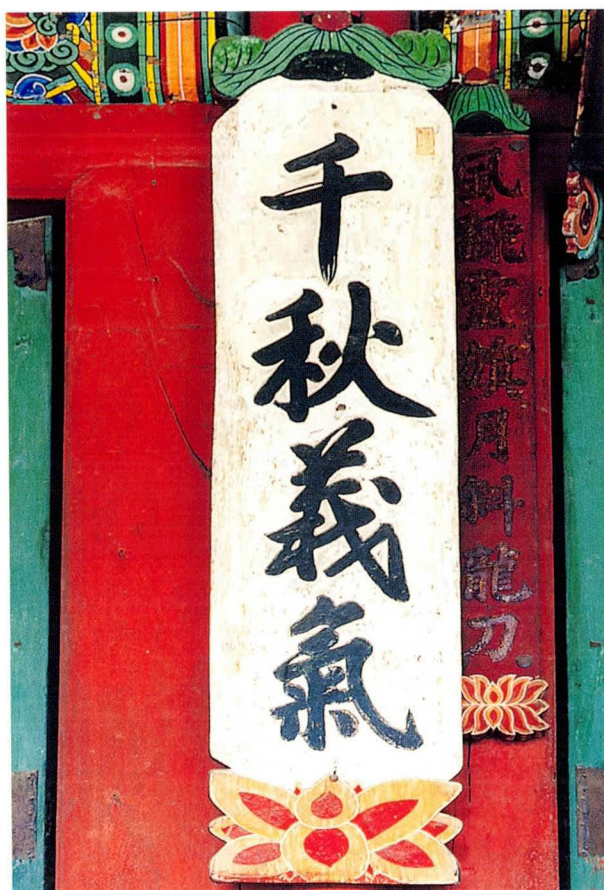 千秋義氣
風飄雲旗月斜龍刀